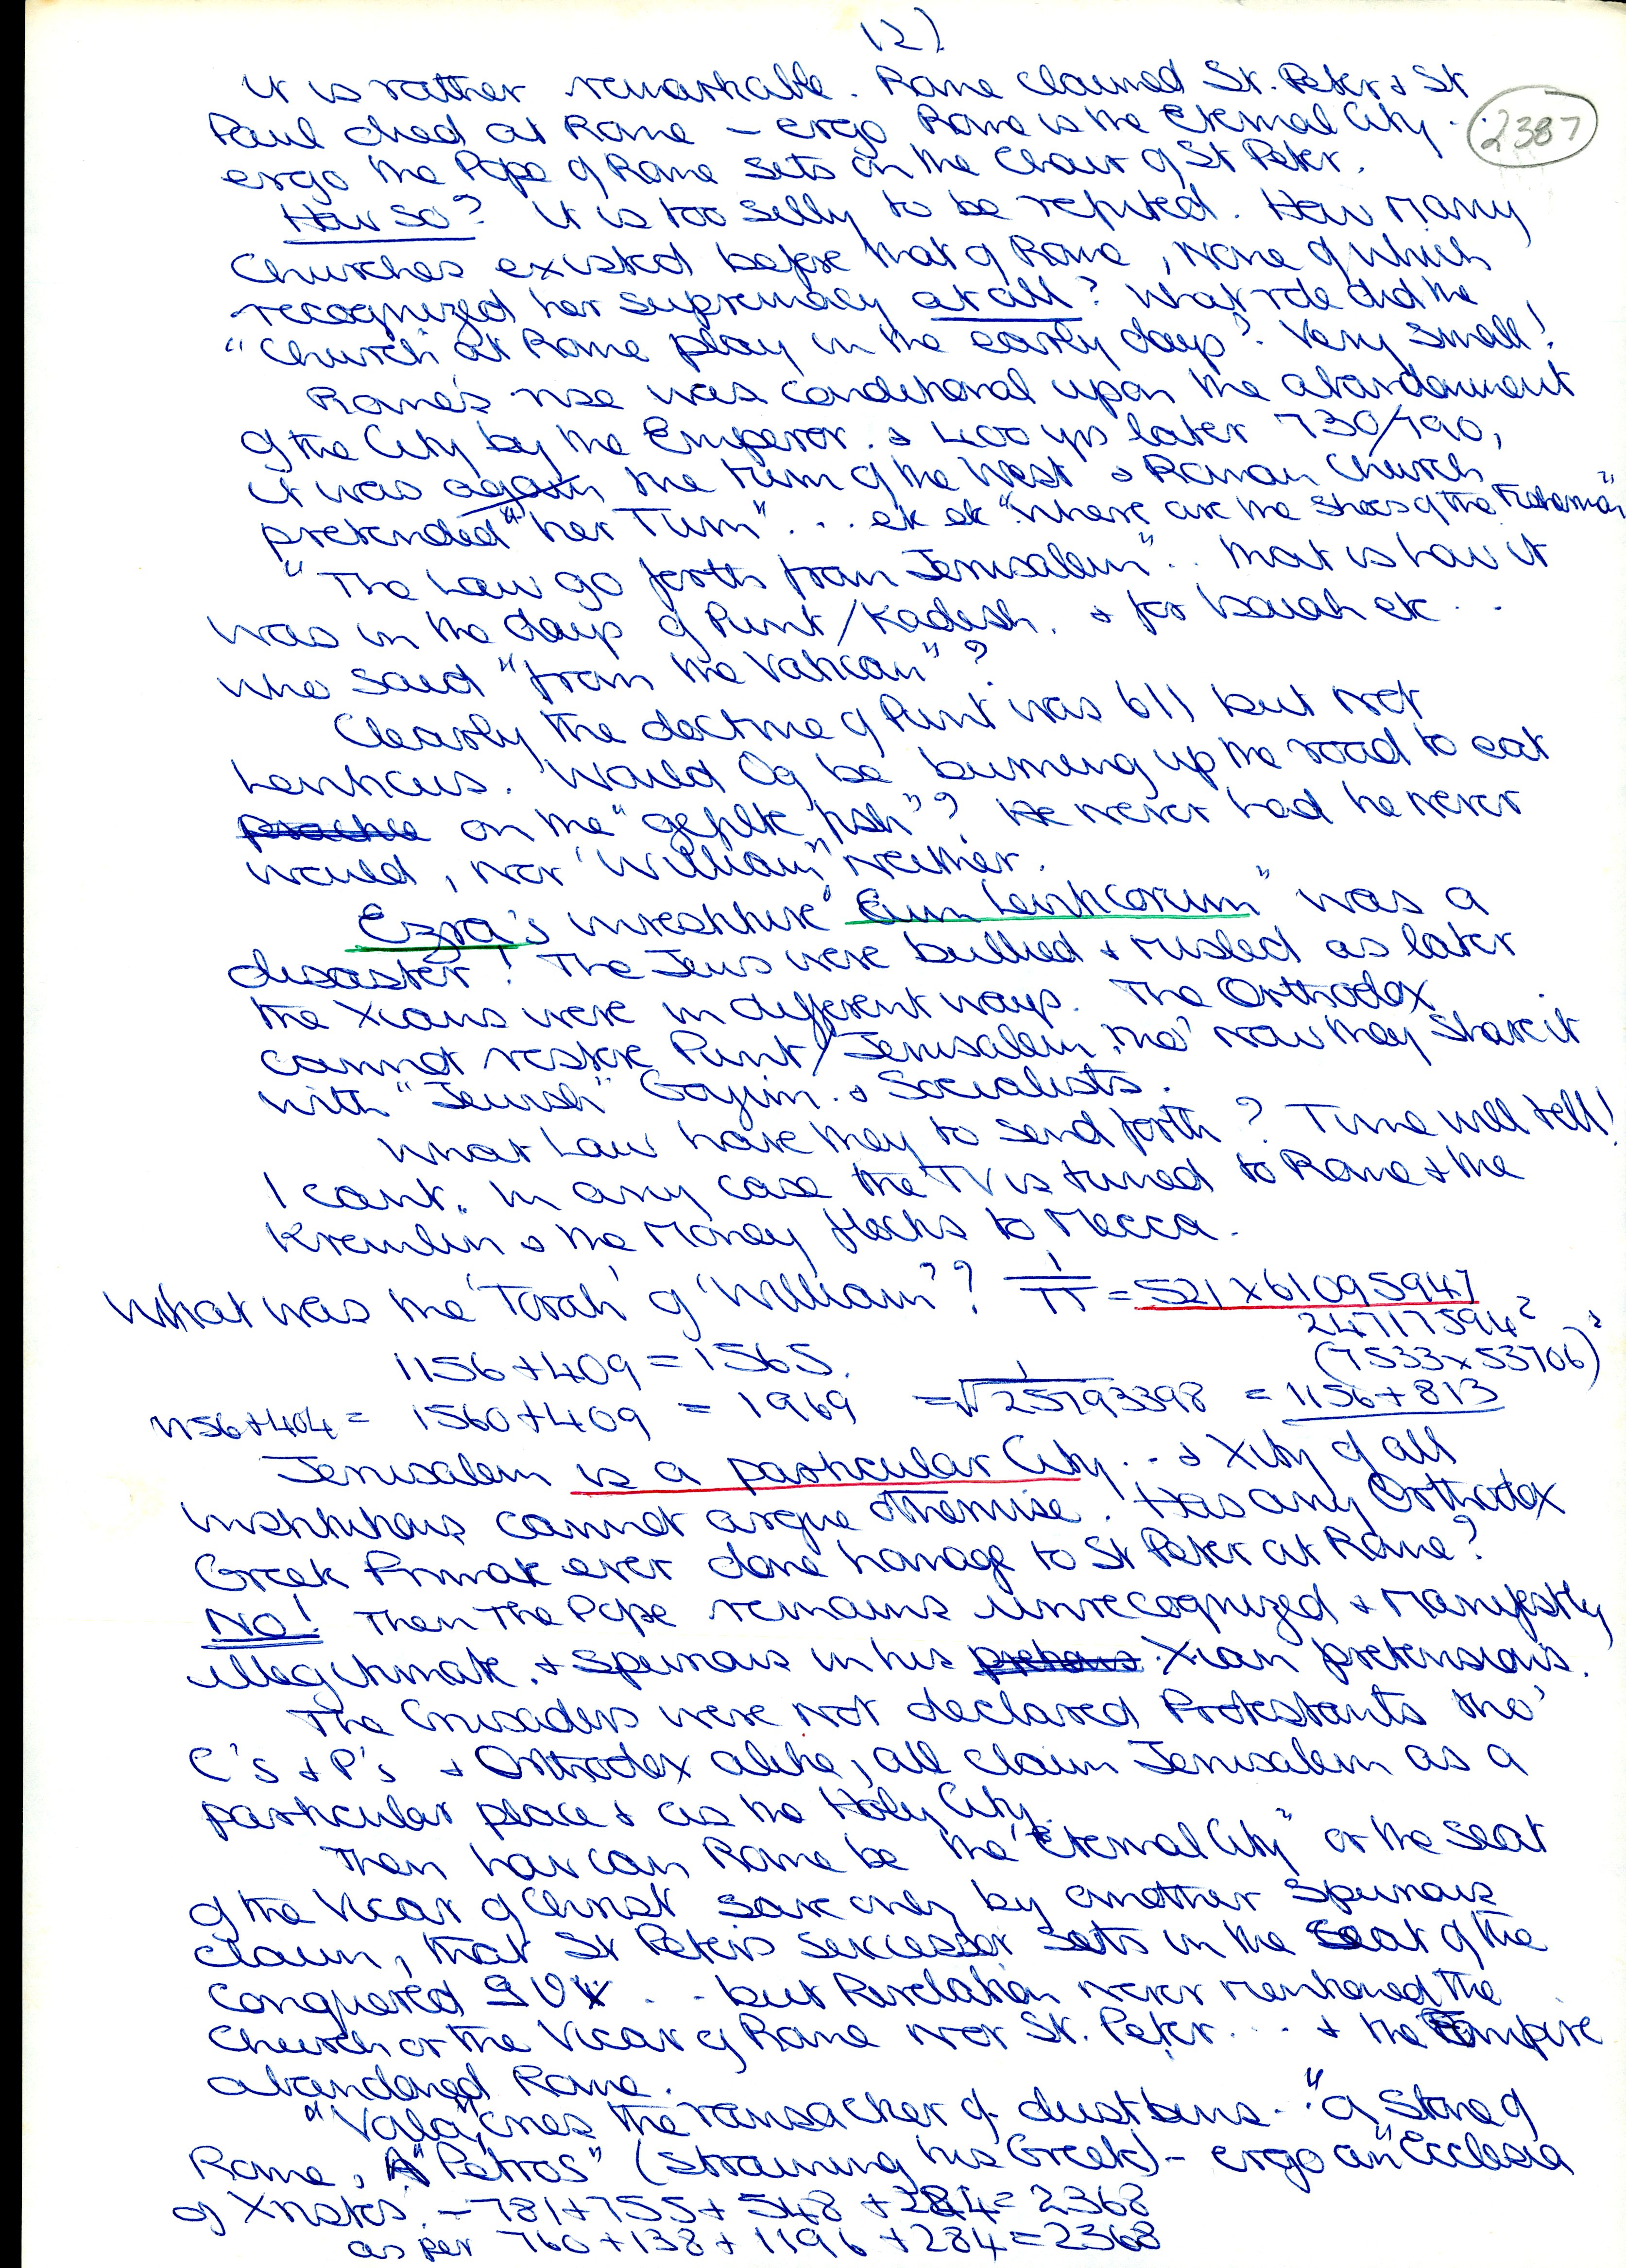 12)
It is rather remarkable. Rome claimed St. Peter & St
Paul died at Rome – ergo Rome is the Eternal City ..
2387
ergo the Pope of Rome sits on the Chair of St Peter.
How so? It is too silly to be refuted. How Many
Churches existed before that of Rome, None of which
recognized her supremacy at all? What role did the
"Church" at Rome play in the early days? Very small!
Rome's rise was conditional upon the abandonment
of the City by the Emperor. & 400 yrs later 730/790,
it was again the turn of the West & Roman Church
pretended "her Turn"... etc etc "Where are the shoes of the Fisherman"
"The Law go forth from Jerusalem".. that is how it
was in the days of Punt/Kadesh. & for Isaiah etc ...
who said "from the Vatican"?
Clearly the doctrine of Punt was 611 but not
Leviticus. Would Og be burning up the road to eat
on the "gefilte fish"? He never had he never
would, nor "William" neither.
Ezra's investiture "Cum Leviticorum" was a
disaster! The Jews were bullied & misled as later
the Xians were in different ways. The Orthodox
cannot restore Punt/Jerusalem, tho' now they share it
with "Jewish" Goyim. & Socialists.
What Law have they to send forth? Time will tell!
I cant. In any case the TV is tuned to Rome & the
Kremlin & the Money flocks to Mecca.
What was the 'Torah' of 'William'? 1/π = 521 x 61095947
24717594²
(7533 x 53706)²
1156 + 409 = 1565.
1156 + 404 = 1560 + 409 = 1969 = 1/√25793398 = 1156 + 813
Jerusalem is a particular City... & Xity of all
institutions cannot argue otherwise! Has any Orthodox
Greek Primate ever done homage to St Peter at Rome?
NO! Then The Pope remains unrecognized & Manifestly
illegitimate. & spurious in his Xian pretensions.
The Crusaders were not declared Protestants tho'
C's & P's & Orthodox alike, all claim Jerusalem as a
particular place & as the Holy City.
Then how can Rome be the "Eternal City" or the seat
of the Vicar of Christ save only by another spurious
claim, that St Peter's successor sits in the seat of the
Conquered ... but Revelation never mentioned the
Church or the Vicar of Rome nor St. Peter.... & the Empire
abandoned Rome.
"Voila", cries the ransacker of dustbins.. "a Stone of
Rome, A "Petros" (straining his Greek) – ergo an "Ecclesia
of Xristos. – 781 + 755 + 548 + 284 = 2368
as per 760 + 138 + 1196 + 284 = 2368